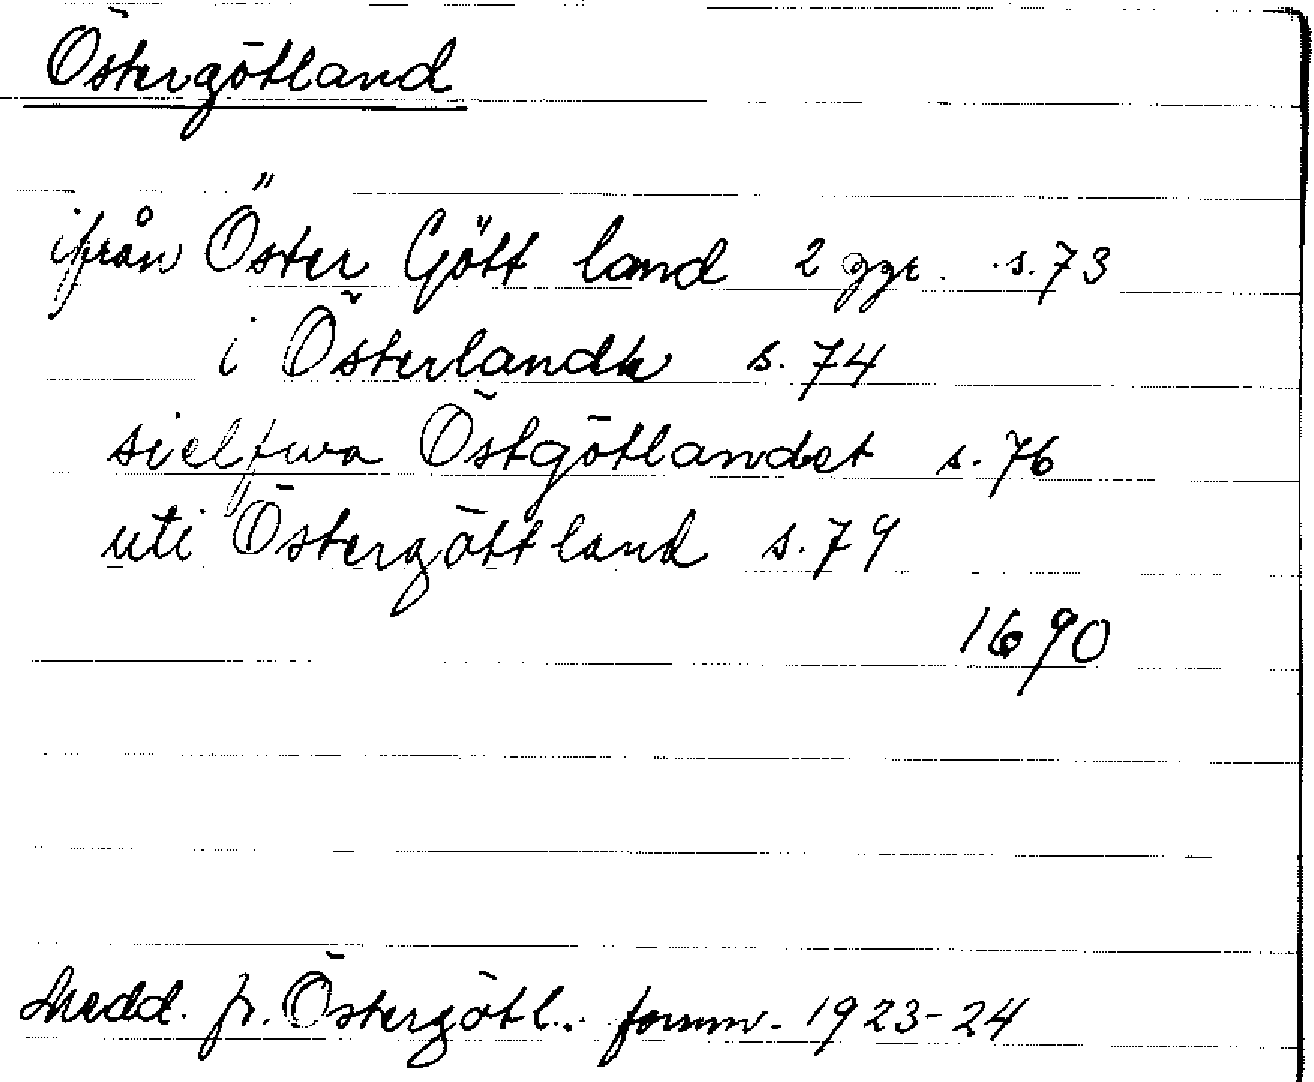 Östergötland
ifrån Öster Gött land 2 ggr. s. 73
i Österlandh s. 74
sielfwa Östgötlandet s. 76
uti Östergöttland s. 79
1690
Medd. fr. Östergötl. fornm. 1923-24